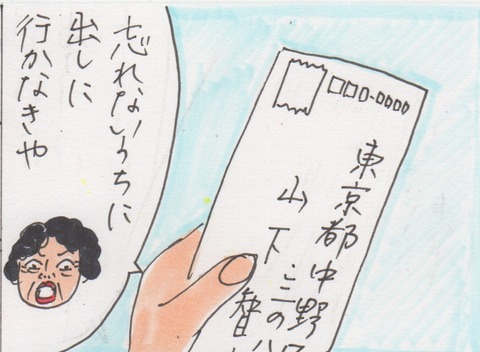 東京都中野
山下
忘れないうちに
出しに
行かなきゃ